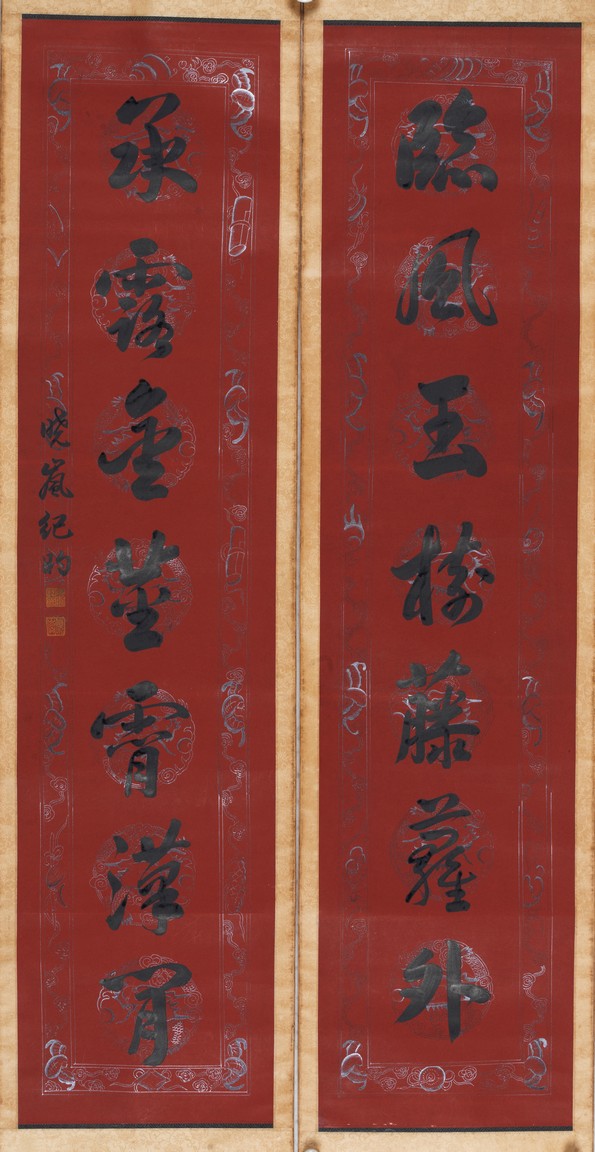 臨風玉樹藤蘿外
承露金莖霄漢間
曉嵐紀昀